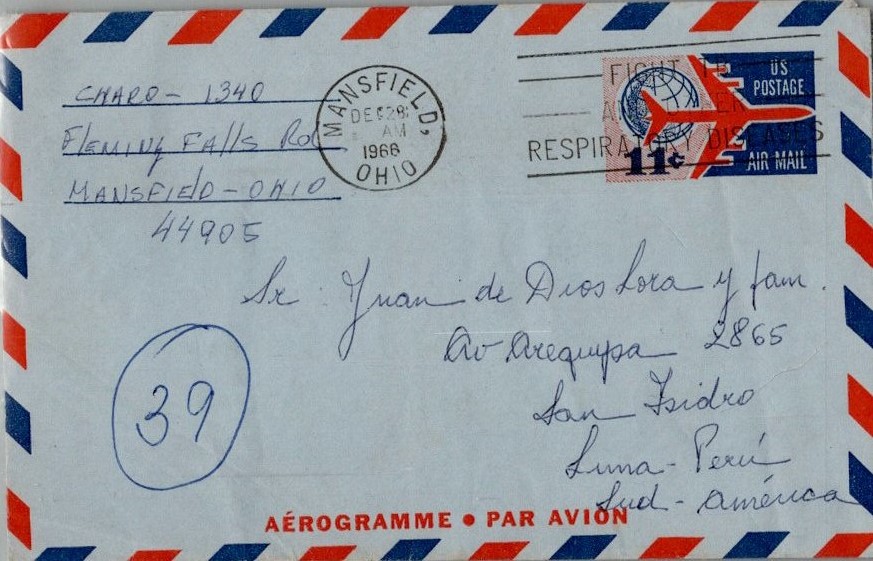 CHARO - 1340
Fleming Falls Rd
MANSFIELD - OHIO
44905
MANSFIELD,
DEC 28
AM
1966
OHIO
FIGHT TB
AND OTHER
RESPIRATORY DISEASES
US
POSTAGE
11¢
AIR MAIL
Sr Juan de Dios Lora y fam.
Av Arequipa 2865
San Isidro
Lima - Perú
Sud - América
39
AÉROGRAMME • PAR AVION